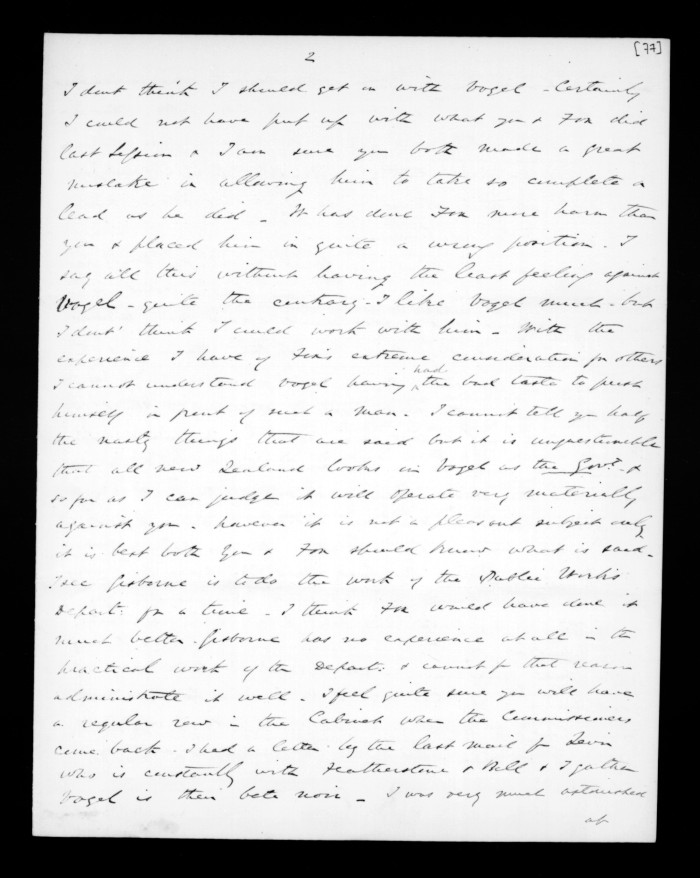 [77]
2
I dont think I should get on with Vogel - Certainly
I could not have put up with what you & Fox did
last Session & I am sure you both made a great
mistake in allowing him to take so complete a
lead as he did - It has done Fox more harm than
you & placed him in quite a wrong position. I
say all this without having the least feeling against
Vogel - quite the contrary - I like Vogel much - but
I dont think I could work with him - With the
experience I have of Fox's extreme consideration for others
I cannot understand Vogel having had the bad taste to push
himself in front of such a man. I cannot tell you half
the nasty things that are said but it is unquestionable
that all New Zealand looks on Vogel as the Govt. &
so far as I can judge it will operate very materially
against you. however it is not a pleasant subject only
it is best both you & Fox should know what is said -
I see Gisborne is to do the work of the Public Works
Depart: for a time - I think Fox would have done it
much better. Gisborne has no experience at all in the
practical work of the Depart: & cannot for that reason
administrate it well - I feel quite sure you will have
a regular row in the Cabinet when the Commissioners
come back. I had a letter by the last mail fr Levin
who is constantly with Featherstone & Bell & I gather
Vogel is their bete noir - I was very much astonished
at